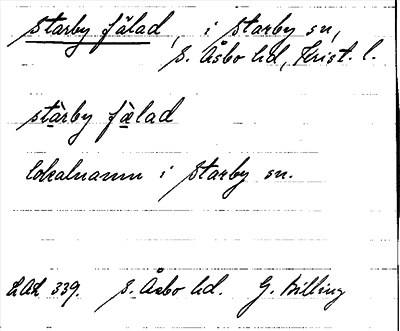 Starby fälad, i Starby sn,
S. Åsbo hd, Krist. l.
stàrby fä̀lad
lokalnamn i Starby sn.
LAL 339. S. Åsbo hd. G. Billing